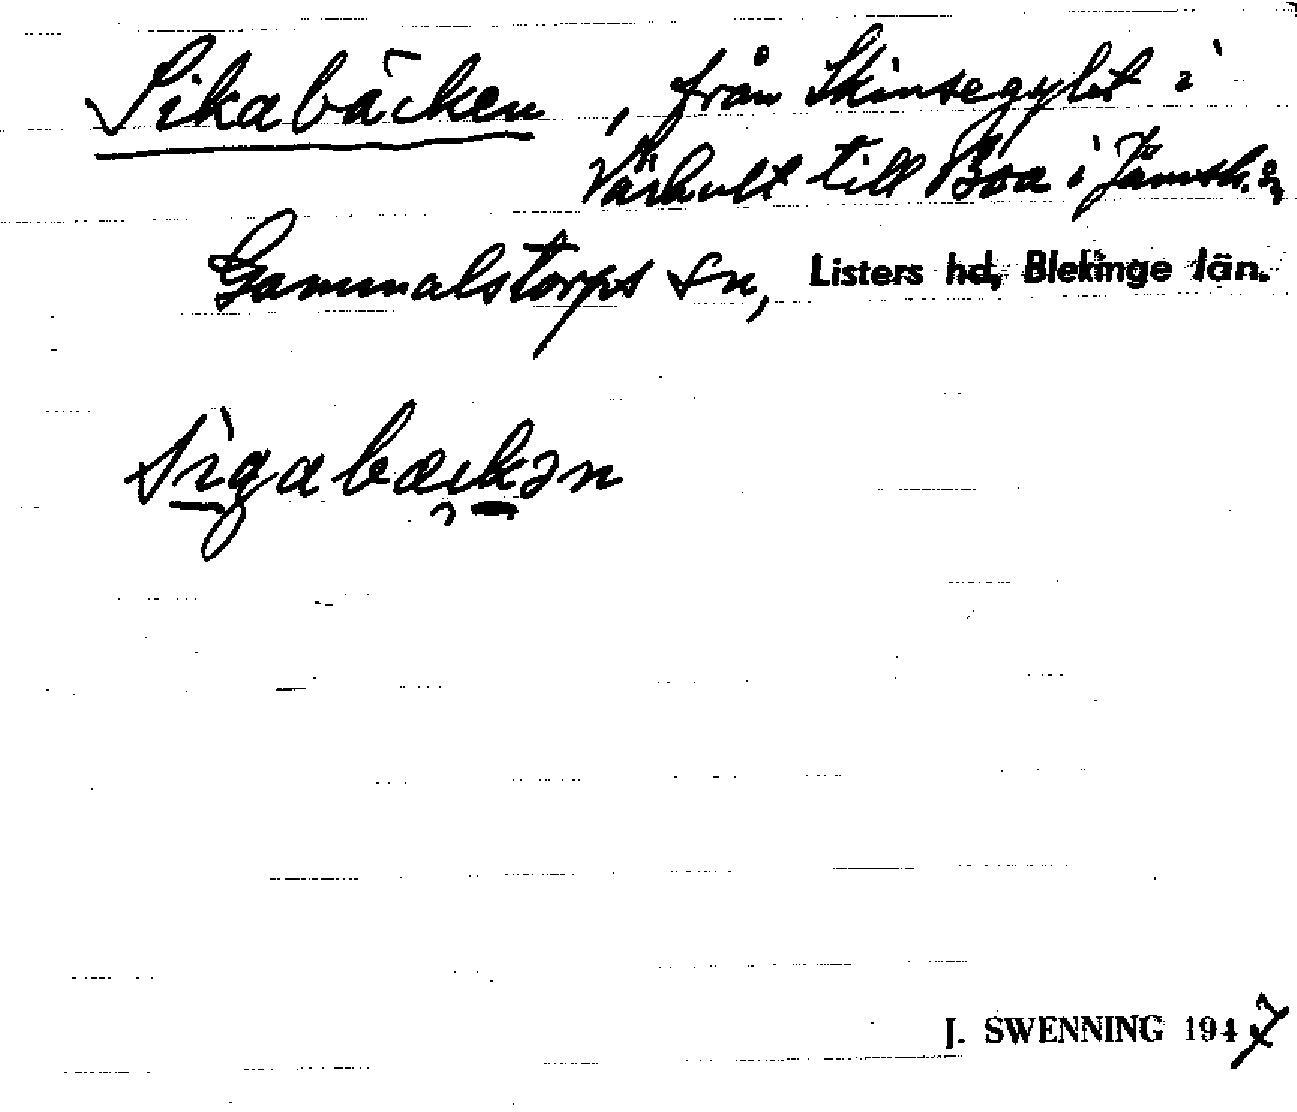 Sikabäcken, från Skinsegylet i
Värhult till Boa i Jämsh. sn
Gammalstorps sn, Listers hd, Blekinge län.
sìgabæckən
J. SWENNING 1947